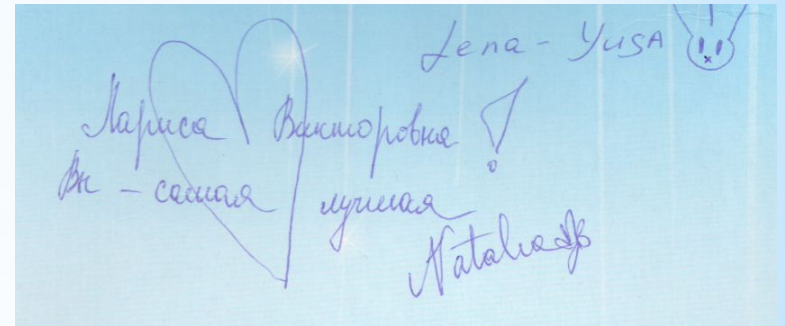 Lena - YusA
Лариса Викторовна!
Вы - самая лучшая
Natalia